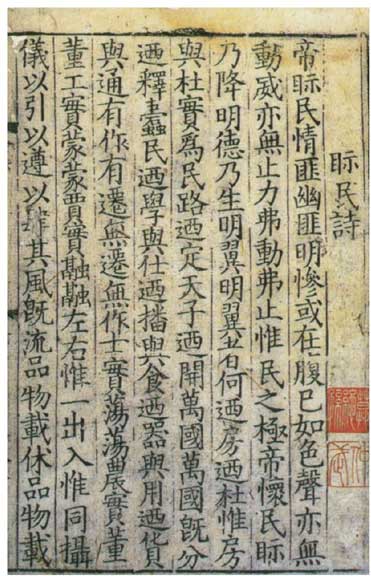 眎民詩
帝眎民情匪幽匪明慘或在腹已如色聲亦無
動威亦無止力弗動弗止惟民之極帝懷民眎
乃降明德乃生明翼明翼者何迺房迺杜惟房
與杜實爲民路迺定天子迺開萬國萬國旣分
迺釋蠹民迺學與仕迺播與食迺器與用迺貨
與通有作有遷無遷無作士實蕩蕩農實董
董工實蒙蒙賈實融融左右惟一出入惟同攝
儀以引以遵以肆其風旣流品物載休品物載